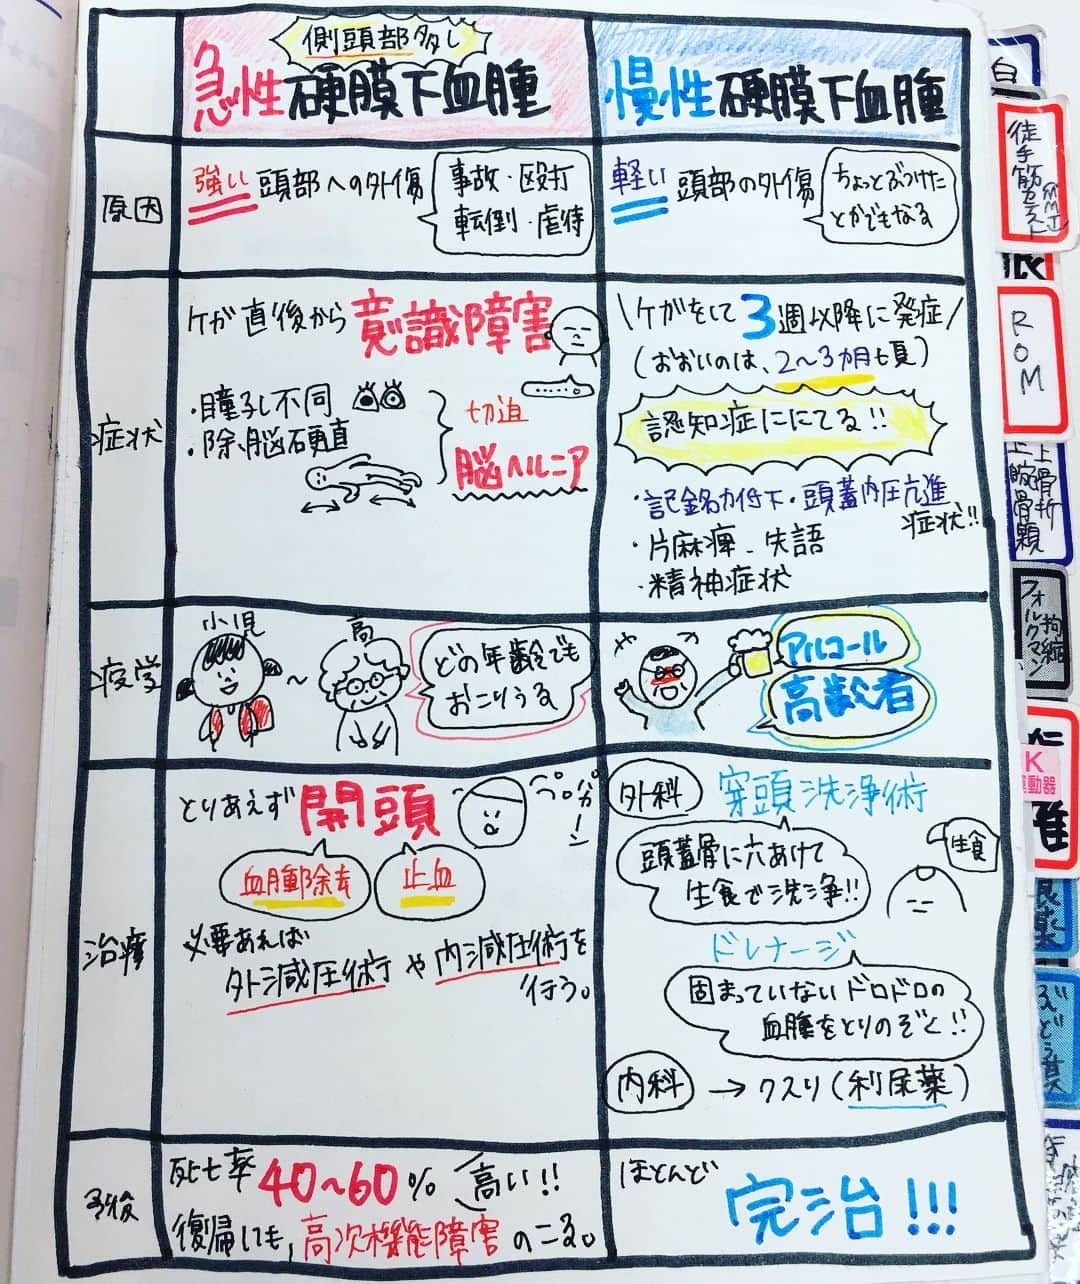 側頭部多し
急性硬膜下血腫
慢性硬膜下血腫
原因
強い頭部への外傷
事故・殴打
転倒・虐待
軽い頭部の外傷
ちょっとぶつけた
とかでもなる
症状
ケガ直後から意識障害
・瞳孔不同
・除脳硬直
切迫
脳ヘルニア
\ケガをして3週以降に発症/
(おおいのは、2〜3カ月頃)
認知症ににてる!!
・記銘力低下・頭蓋内圧亢進
症状!!
・片麻痺・失語
・精神症状
疫学
小児
〜
高
どの年齢でも
おこりうる
アルコール
高齢者
治療
とりあえず開頭
パッカーン
血腫除去
止血
必要あれば
外減圧術や内減圧術を
行う。
外科
穿頭洗浄術
頭蓋骨に穴あけて
生食で洗浄!!
生食
ドレナージ
固まっていないドロドロの
血腫をとりのぞく!!
内科→クスリ(利尿薬)
予後
死亡率40〜60%高い!!
復帰しても、高次機能障害のこる。
ほとんど
完治!!!
徒手筋力テスト
MMT
ROM
上腕骨顆
上骨折
フォルクマン
拘縮
K
運動器